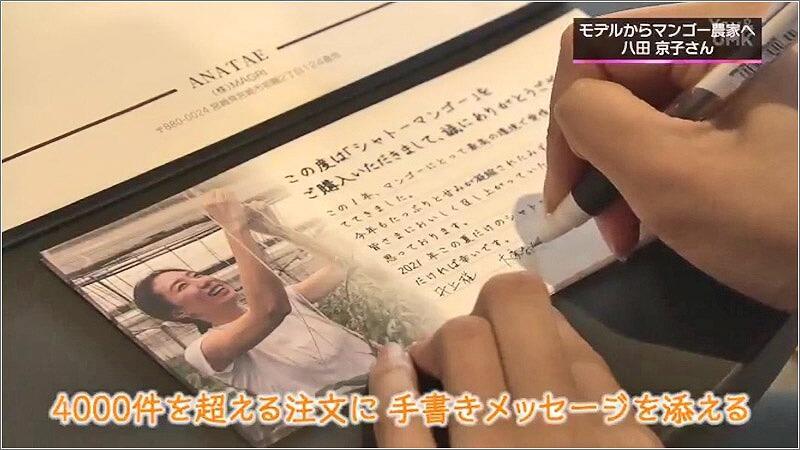 モデルからマンゴー農家へ
八田 京子さん
UMK
ANATAE
(株)MAGRI
この度は「シャトーマンゴー」を
ご購入いただきまして、誠にありがとうござ
この1年、マンゴーにとって最高の環境で愛情
ててきました。
今年もたっぷりと甘みが凝縮されたみず
皆さまにおいしく召し上がってい
思っております。
2021年この夏だけのシャト
だければ幸いです。
4000件を超える注文に 手書きメッセージを添える